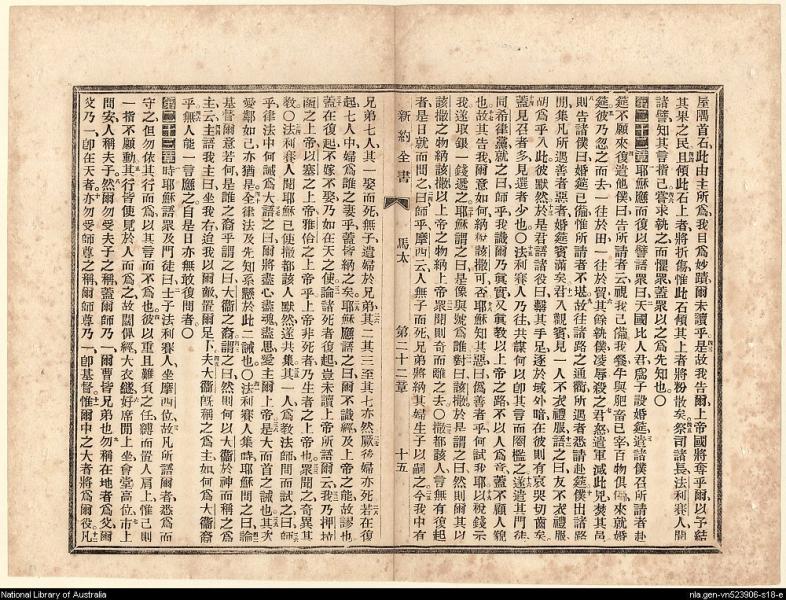 屋隅首石此由主所爲我目爲妙蹟爾未讀乎是故我告爾上帝國將奪乎爾以予結
其果之民且傾此石上者將折傷惟此石傾其上者將粉散矣祭司諸長法利賽人聞
諸譬知其言指己嘗求執之而懼衆蓋衆以之爲先知也○
第二十二章耶穌應而復以譬語衆曰天國比人君爲子設婚筵遣諸僕召所請者赴
筵不願來復遣他僕曰告所請者云視我已備我餐牛與肥畜已宰百物俱備來就婚
筵彼乃忽之而去一往於田一往於貿其餘執僕凌辱殺之君怒遣軍滅此兇焚其邑
則告諸僕曰婚筵已備惟所請者不堪故往諸路之通衢所遇者悉請赴筵僕出諸路
間集凡所遇善者惡者婚筵賓滿矣君入觀賓見一人不衣禮服語之曰友不衣禮服
胡爲乎入此彼默然於是君語諸役曰繫其手足逐於域外暗在彼則有哀哭切齒矣
蓋見召者多見選者少也○法利賽人乃往共謀何以即其言而罔檻之遂遣其門徒
同希律黨就之曰師乎我識爾乃眞實又眞教以上帝之路不以人爲意蓋不顧人貌
也故其告我爾意如何納稅該撒可否耶穌知其惡曰僞善者乎何試我耶以稅錢示
我遂取銀一錢遞之耶穌謂之曰是像與號爲誰對曰該撒於是謂之曰然則爾其以
該撒之物納該撒以上帝之物納上帝衆聞則奇而離之去○撒都該人言無有復起
者是日就而問之曰師乎摩西云人無子而死兄弟將納其婦生子以嗣之今我中有
新約全書 馬太 第二十二章 十五
兄弟七人其一娶而死無子遺婦於兄弟其二其三至其七亦然厥後婦亦死若在復
起七人中婦爲誰之妻乎蓋皆納之矣耶穌應語之曰爾不識經及上帝之能故謬也
蓋在復起不嫁不娶乃如在天之使論諸死者復起豈未讀上帝所語爾云我乃亞伯拉
罕之上帝以撒之上帝雅各之上帝乎上帝非死者乃生者之上帝也衆聞之奇異其
教○法利賽人聞耶穌已使撒都該人默然遂共集其一人爲教法師問而試之曰師
乎律法中何誡爲大語之曰爾將盡心盡魂盡思愛主爾上帝是大而首之誡也其次
愛鄰如己亦猶是全律法及先知系懸於此二誡也○法利賽人集時耶穌問之曰論
基督爾意若何是誰之裔乎謂之曰大衞之裔謂之曰然則何以大衞於神而稱之爲
主云主語我主曰坐我右迨我以爾敵置爾足下夫大衞旣稱之爲主如何爲大衞裔
乎無人能一言應之自是日亦無敢復問者○
第二十三章時耶穌語衆及門徒曰士子法利賽人坐摩西位故凡所語爾者悉爲而
守之但勿依其行而爲以其言而不爲也彼以重且難負之任縛而置人肩上惟己則
一指不願動其行皆使見於人而爲之故闊佩經大衣繸好席間上坐會堂高位市上
問安人稱夫子然爾勿受夫子之稱蓋爾師乃一爾曹皆兄弟也勿稱在地者爲父爾
父乃一卽在天者亦勿受師尊之稱爾師尊乃一卽基督惟爾中之大者將爲爾役凡
National Library of Australia
nla.gen-vn523906-s18-e